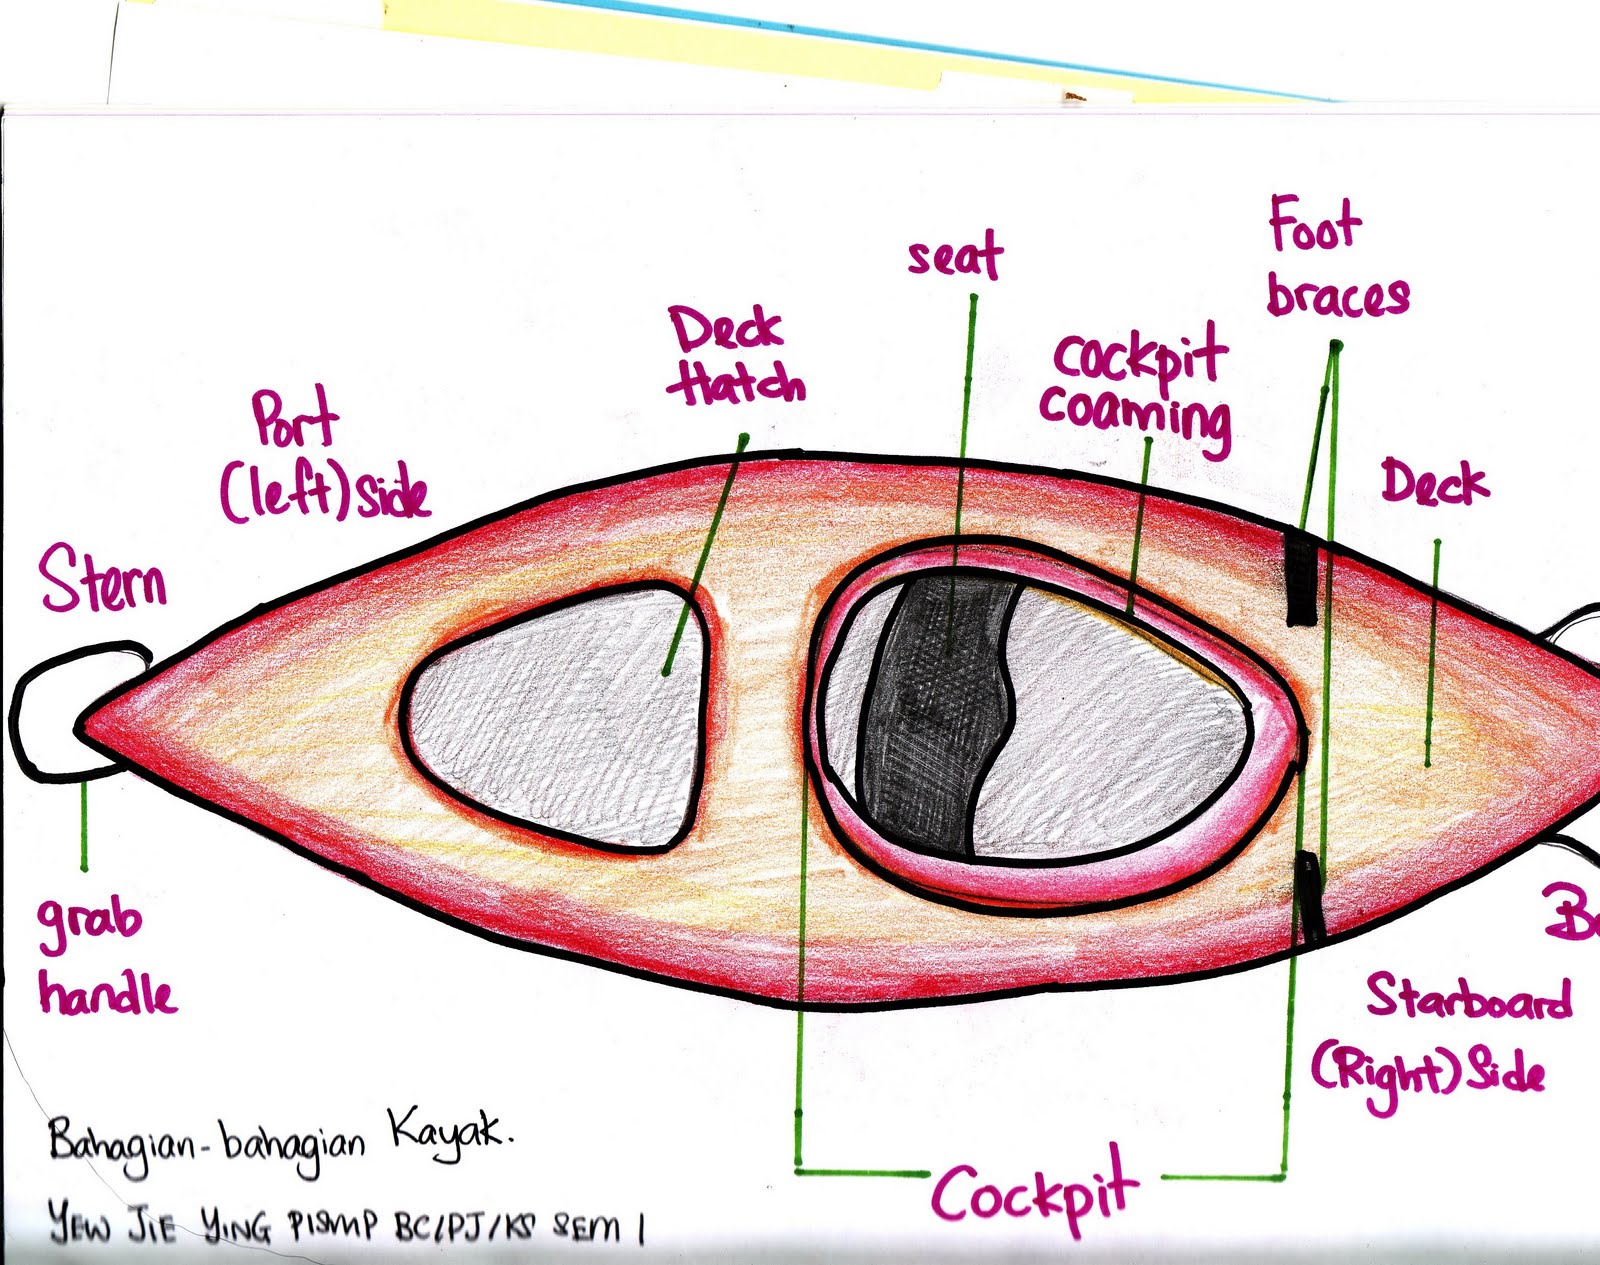 Foot
braces
seat
Deck
Hatch
cockpit
coaming
Port
(left) side
Deck
Stern
grab
handle
Starboard
(Right) Side
Cockpit
Bahagian-bahagian Kayak.
YEW JIE YING PISMP BC/PJ/KS SEM 1